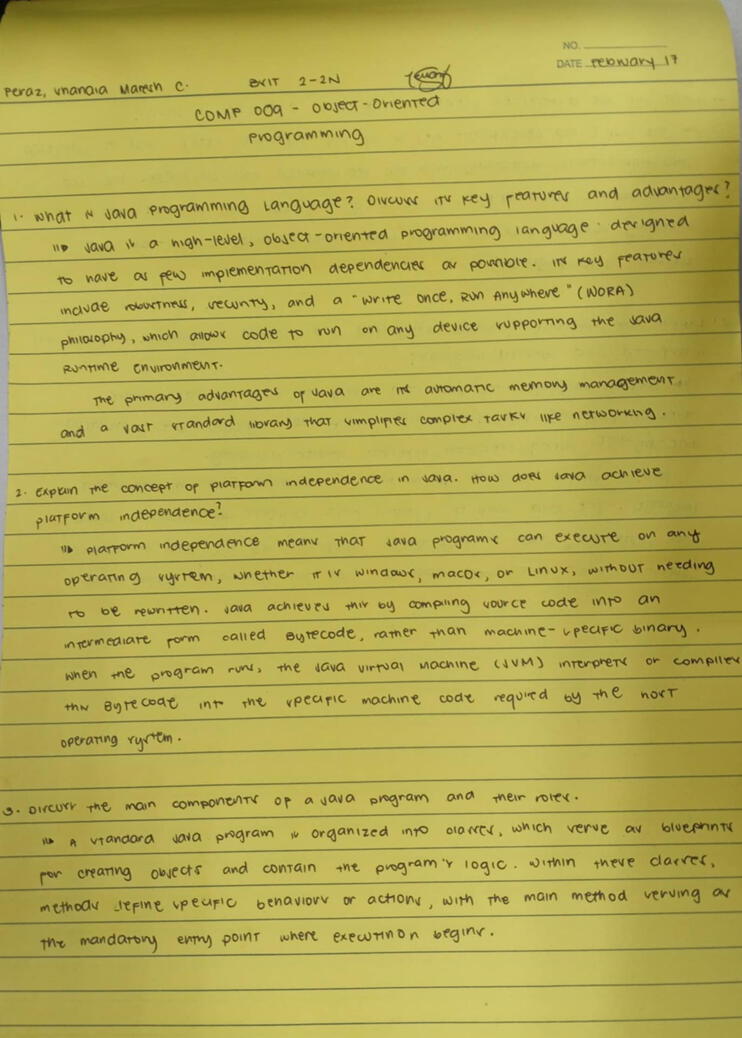 NO.
DATE February 17
Peraz, Maresh C. 2-2N
COMP 009 - Object-Oriented
Programming
1. What is Java Programming Language? Discuss its key features and advantages?
Java is a high-level, object-oriented programming language designed
to have as few implementation dependencies as possible. its key features
include robustness, security, and a "write once, Run Anywhere" (WORA)
philosophy, which allows code to run on any device supporting the Java
Runtime Environment.
The primary advantages of Java are its automatic memory management,
and a vast standard library that simplifies complex tasks like networking.
2. Explain the concept of platform independence in Java. How does Java achieve
platform independence?
platform independence means that Java programs can execute on any
operating system, whether it is windows, macOS, or Linux, without needing
to be rewritten. Java achieves this by compiling source code into an
intermediate form called Bytecode, rather than machine-specific binary.
when the program runs, the Java Virtual Machine (JVM) interprets or compiles
this Bytecode into the specific machine code required by the host
operating system.
3. Discuss the main components of a Java program and their roles.
A standard Java program is organized into classes, which serve as blueprints
for creating objects and contain the program's logic. within these classes,
methods define specific behaviors or actions, with the main method serving as
the mandatory entry point where execution begins.